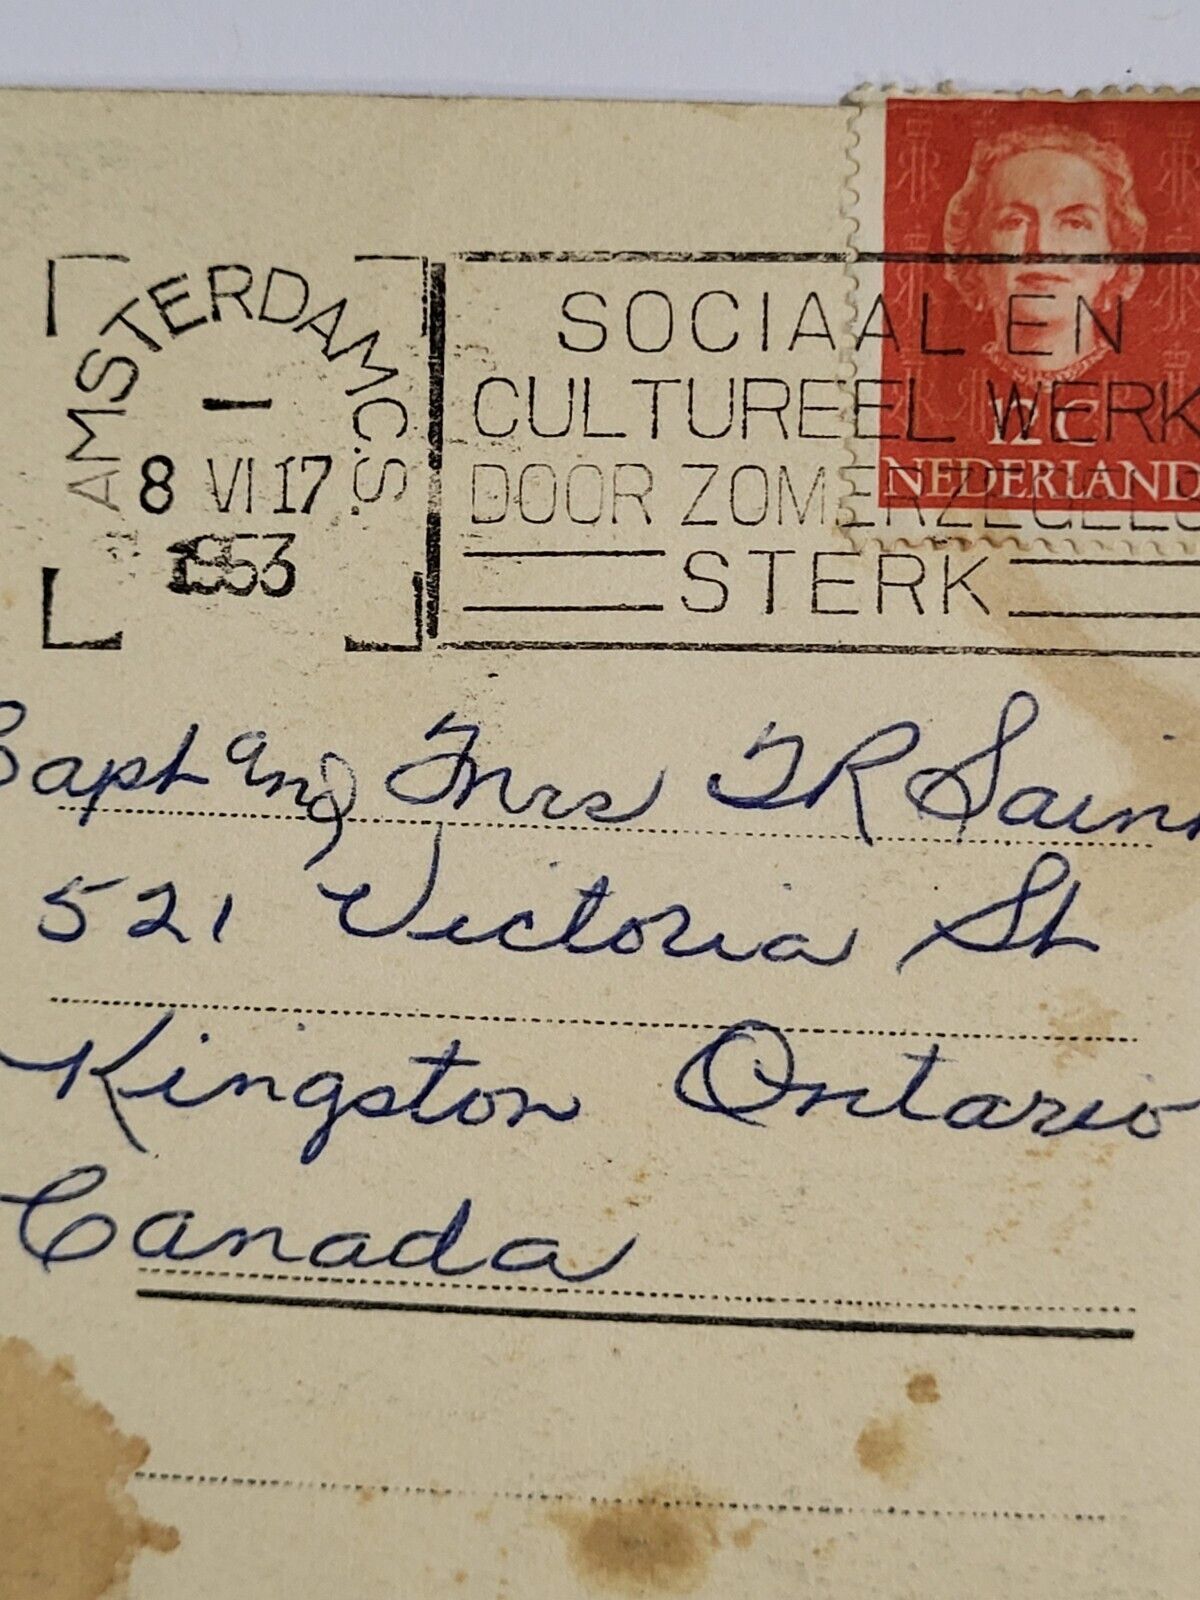 AMSTERDAM C.S.
8 VI 17
1953
SOCIAAL EN
CULTUREEL WERK
DOOR ZOMERZEGELS
STERK
12 C
NEDERLAND
Capt and Mrs T R
521 Victoria St
Kingston Ontario
Canada